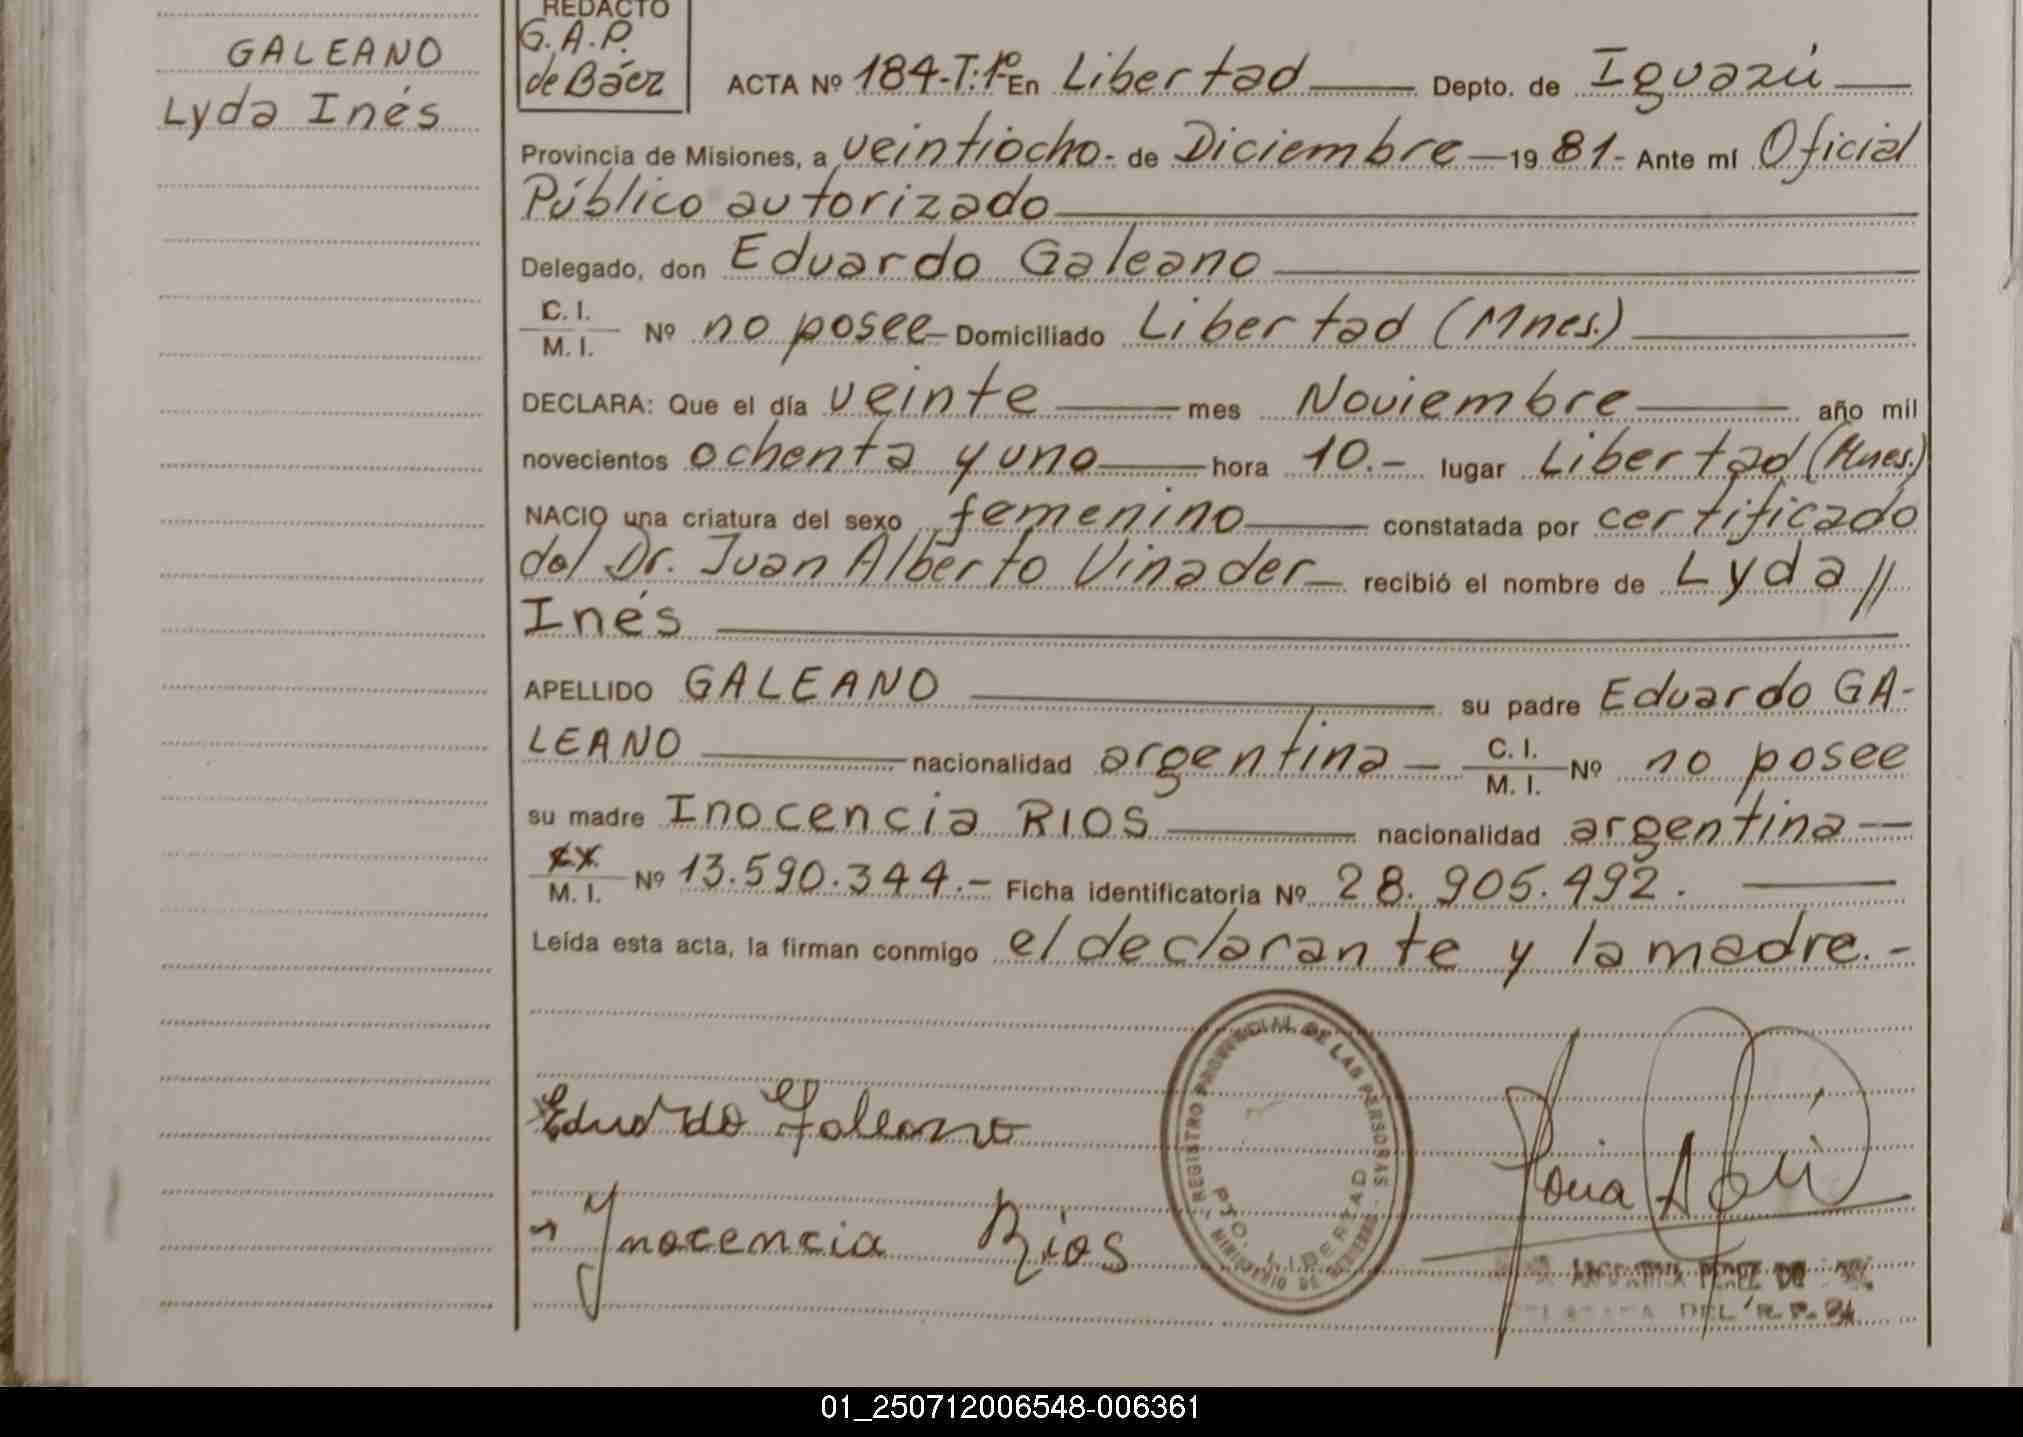 GALEANO
Lyda Inés
REDACTO
G.A.P.
de Báez
ACTA Nº 184-T:1º En Libertad Depto. de Iguazú
Provincia de Misiones, a veintiocho.- de Diciembre 19 81.- Ante mí Oficial
Público autorizado
Delegado, don Eduardo Galeano
C. I.
M. I. Nº no posee Domiciliado Libertad (Mnes.)
DECLARA: Que el día veinte mes Noviembre año mil
novecientos ochenta y uno hora 10.- lugar Libertad (Mnes.)
NACIO una criatura del sexo femenino constatada por certificado
del Dr. Juan Alberto Vinader recibió el nombre de Lyda //
Inés
APELLIDO GALEANO su padre Eduardo GA-
LEANO nacionalidad argentina C. I.
M. I. Nº no posee
su madre Inocencia RIOS nacionalidad argentina
M. I. Nº 13.590.344.- Ficha identificatoria Nº 28.905.492.
Leída esta acta, la firman conmigo el declarante y la madre.-
Eduardo Galeano
Inocencia Rios
REGISTRO PROVINCIAL DE LAS PERSONAS
PTO. LIBERTAD
MINISTERIO DE
DEL R. P.
01_250712006548-006361